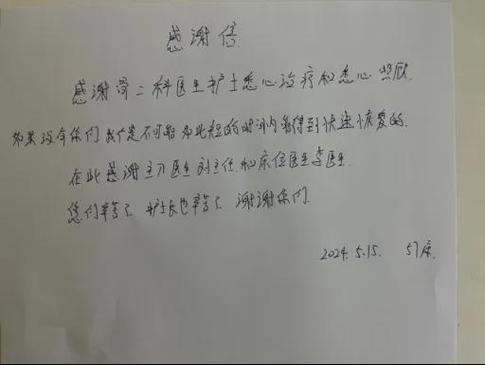 感谢信
感谢骨二科医生护士悉心治疗和悉心照顾.
如果没有你们我们是不可能在此短的时间内获得到快速恢复的.
在此感谢主刀医生刘主任和床位医生李医生.
您们辛苦了 护士长也辛苦了 谢谢你们.
2024.5.15. 57床.